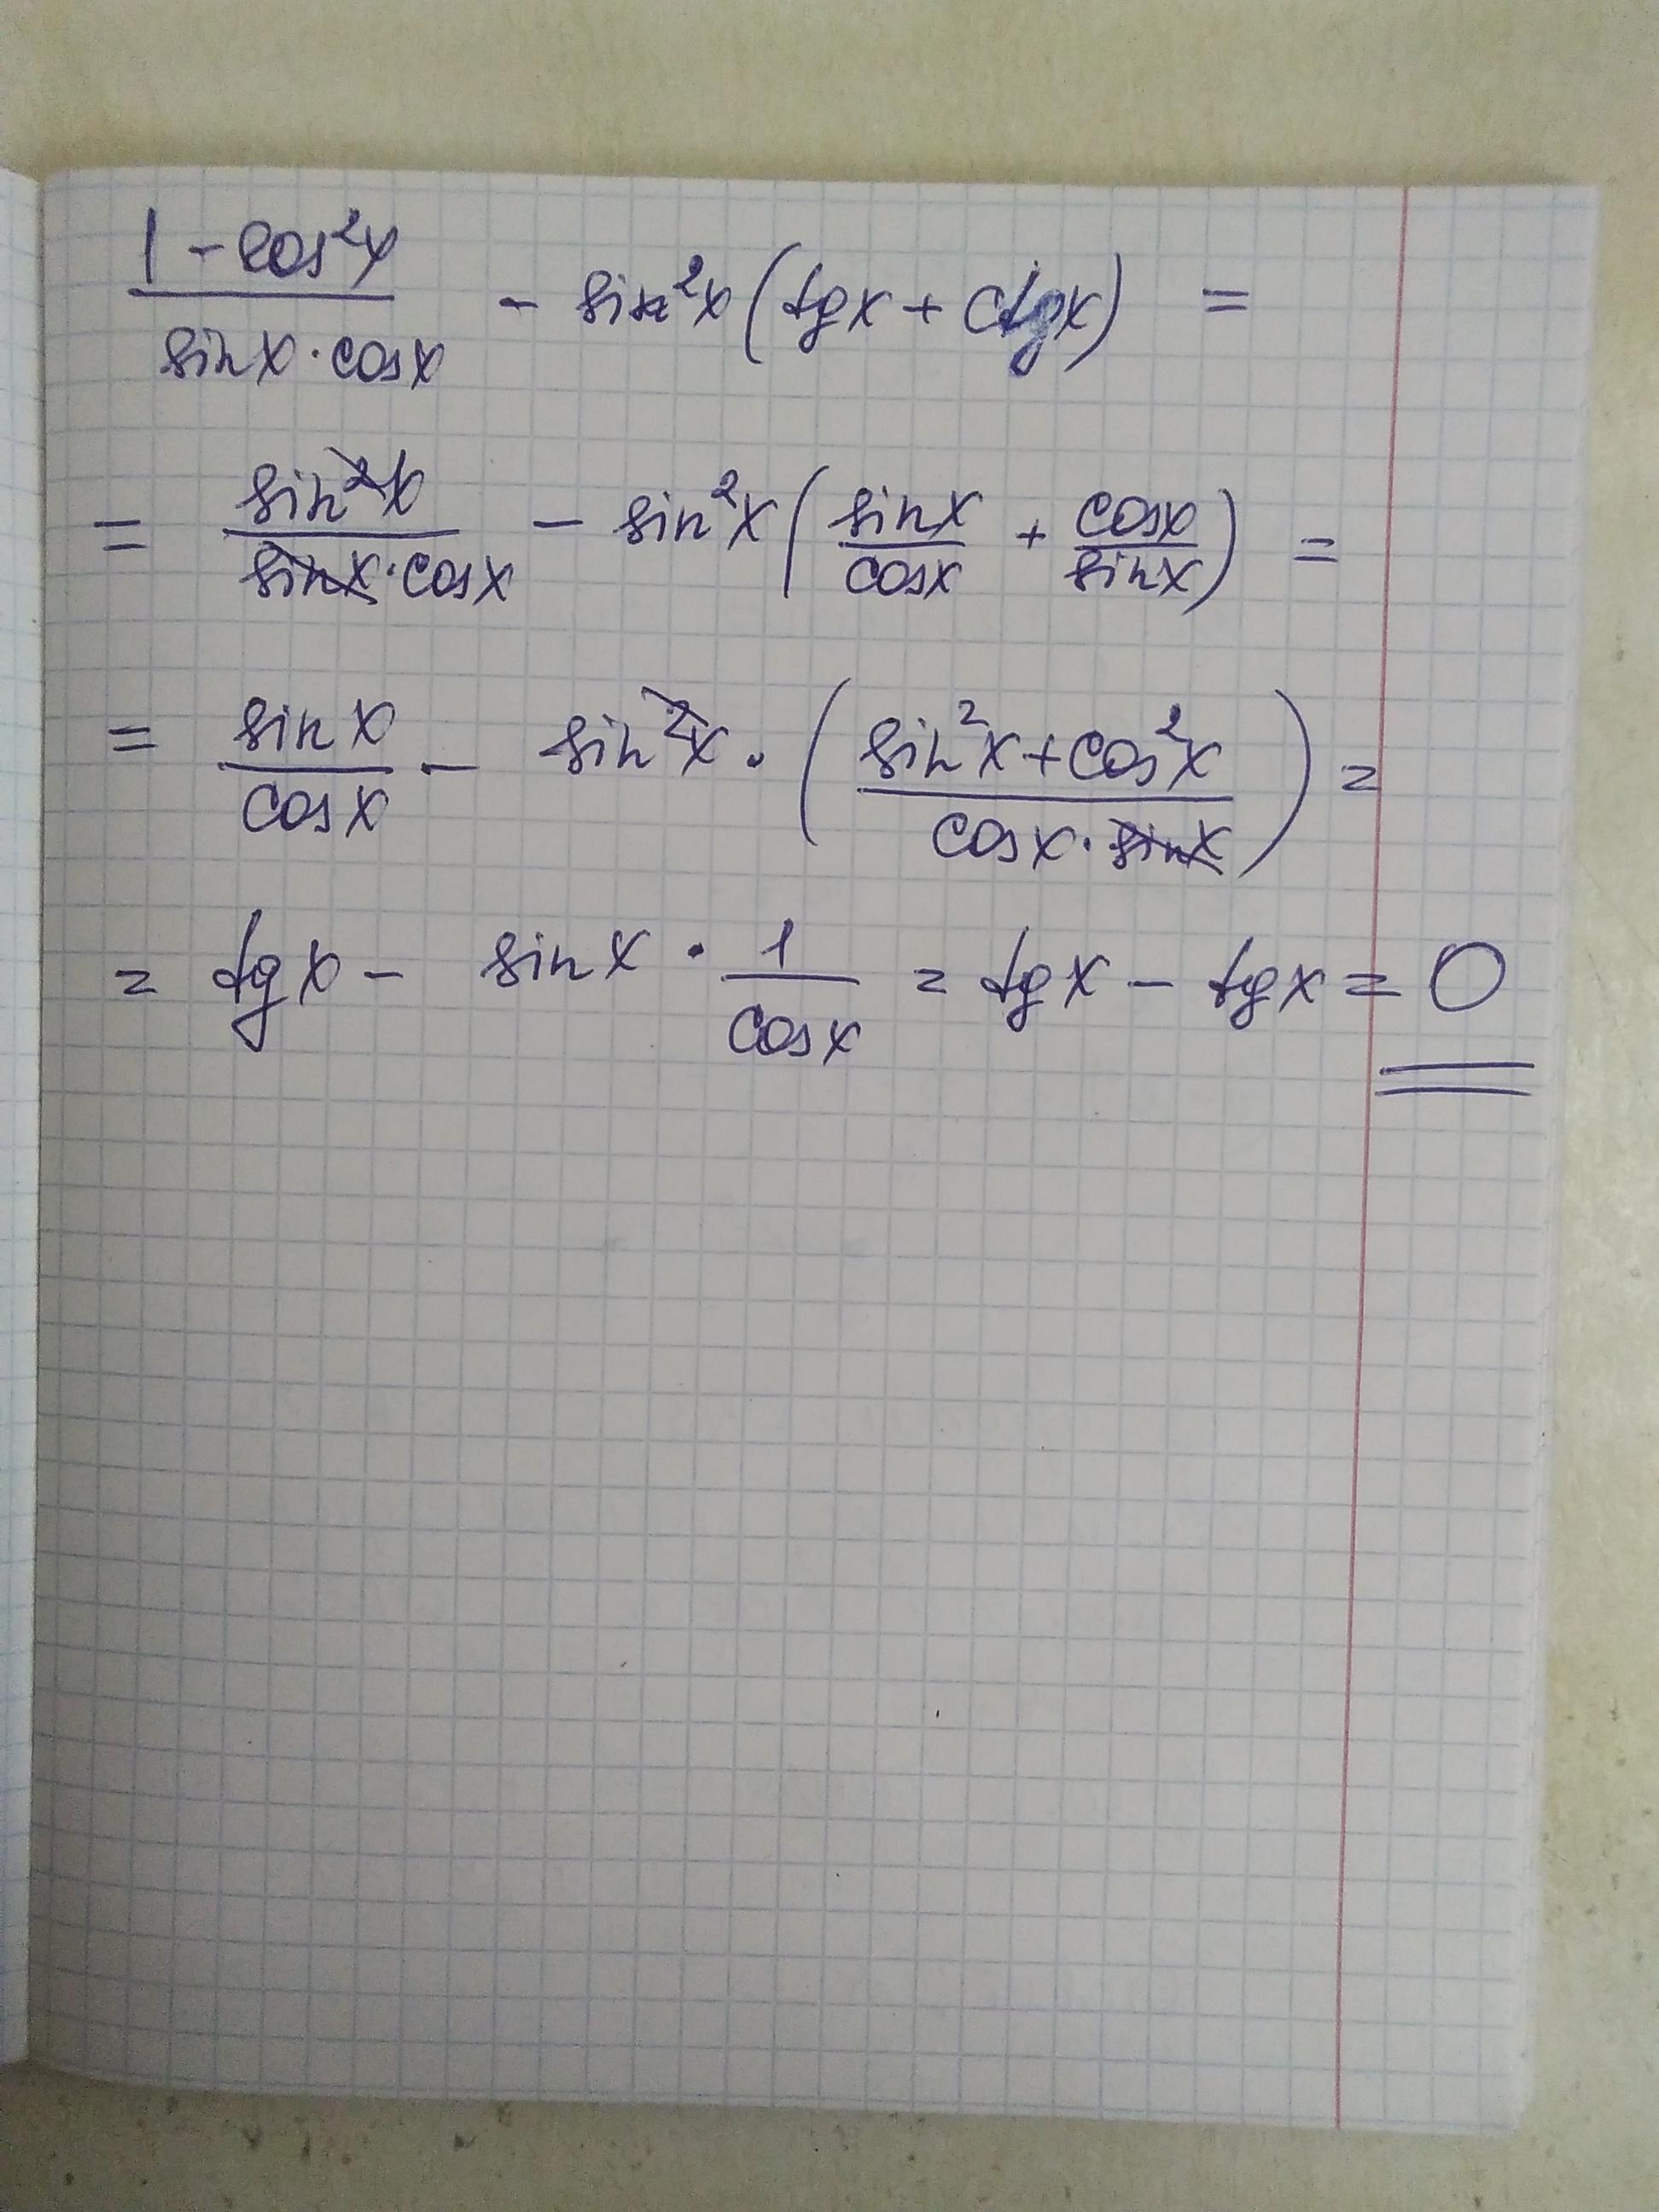 (1 - cos²x)/(sin x · cos x) - sin²x (tg x + ctg x) =
= (sin²x)/(sin x · cos x) - sin²x (sin x/cos x + cos x/sin x) =
= sin x/cos x - sin²x · ((sin²x + cos²x)/(cos x · sin x)) =
= tg x - sin x · 1/cos x = tg x - tg x = 0